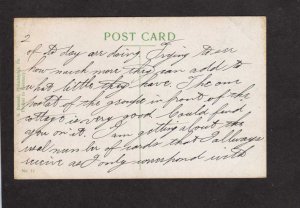 2
POST CARD
of to day are doing. Trying to see
how much more they can add to
what little they have. The one
postal of the groupe in front of the
cottage is very good. Could find
you on it. I am getting about the
usual number of cards that I allways
receive as I only correspond with